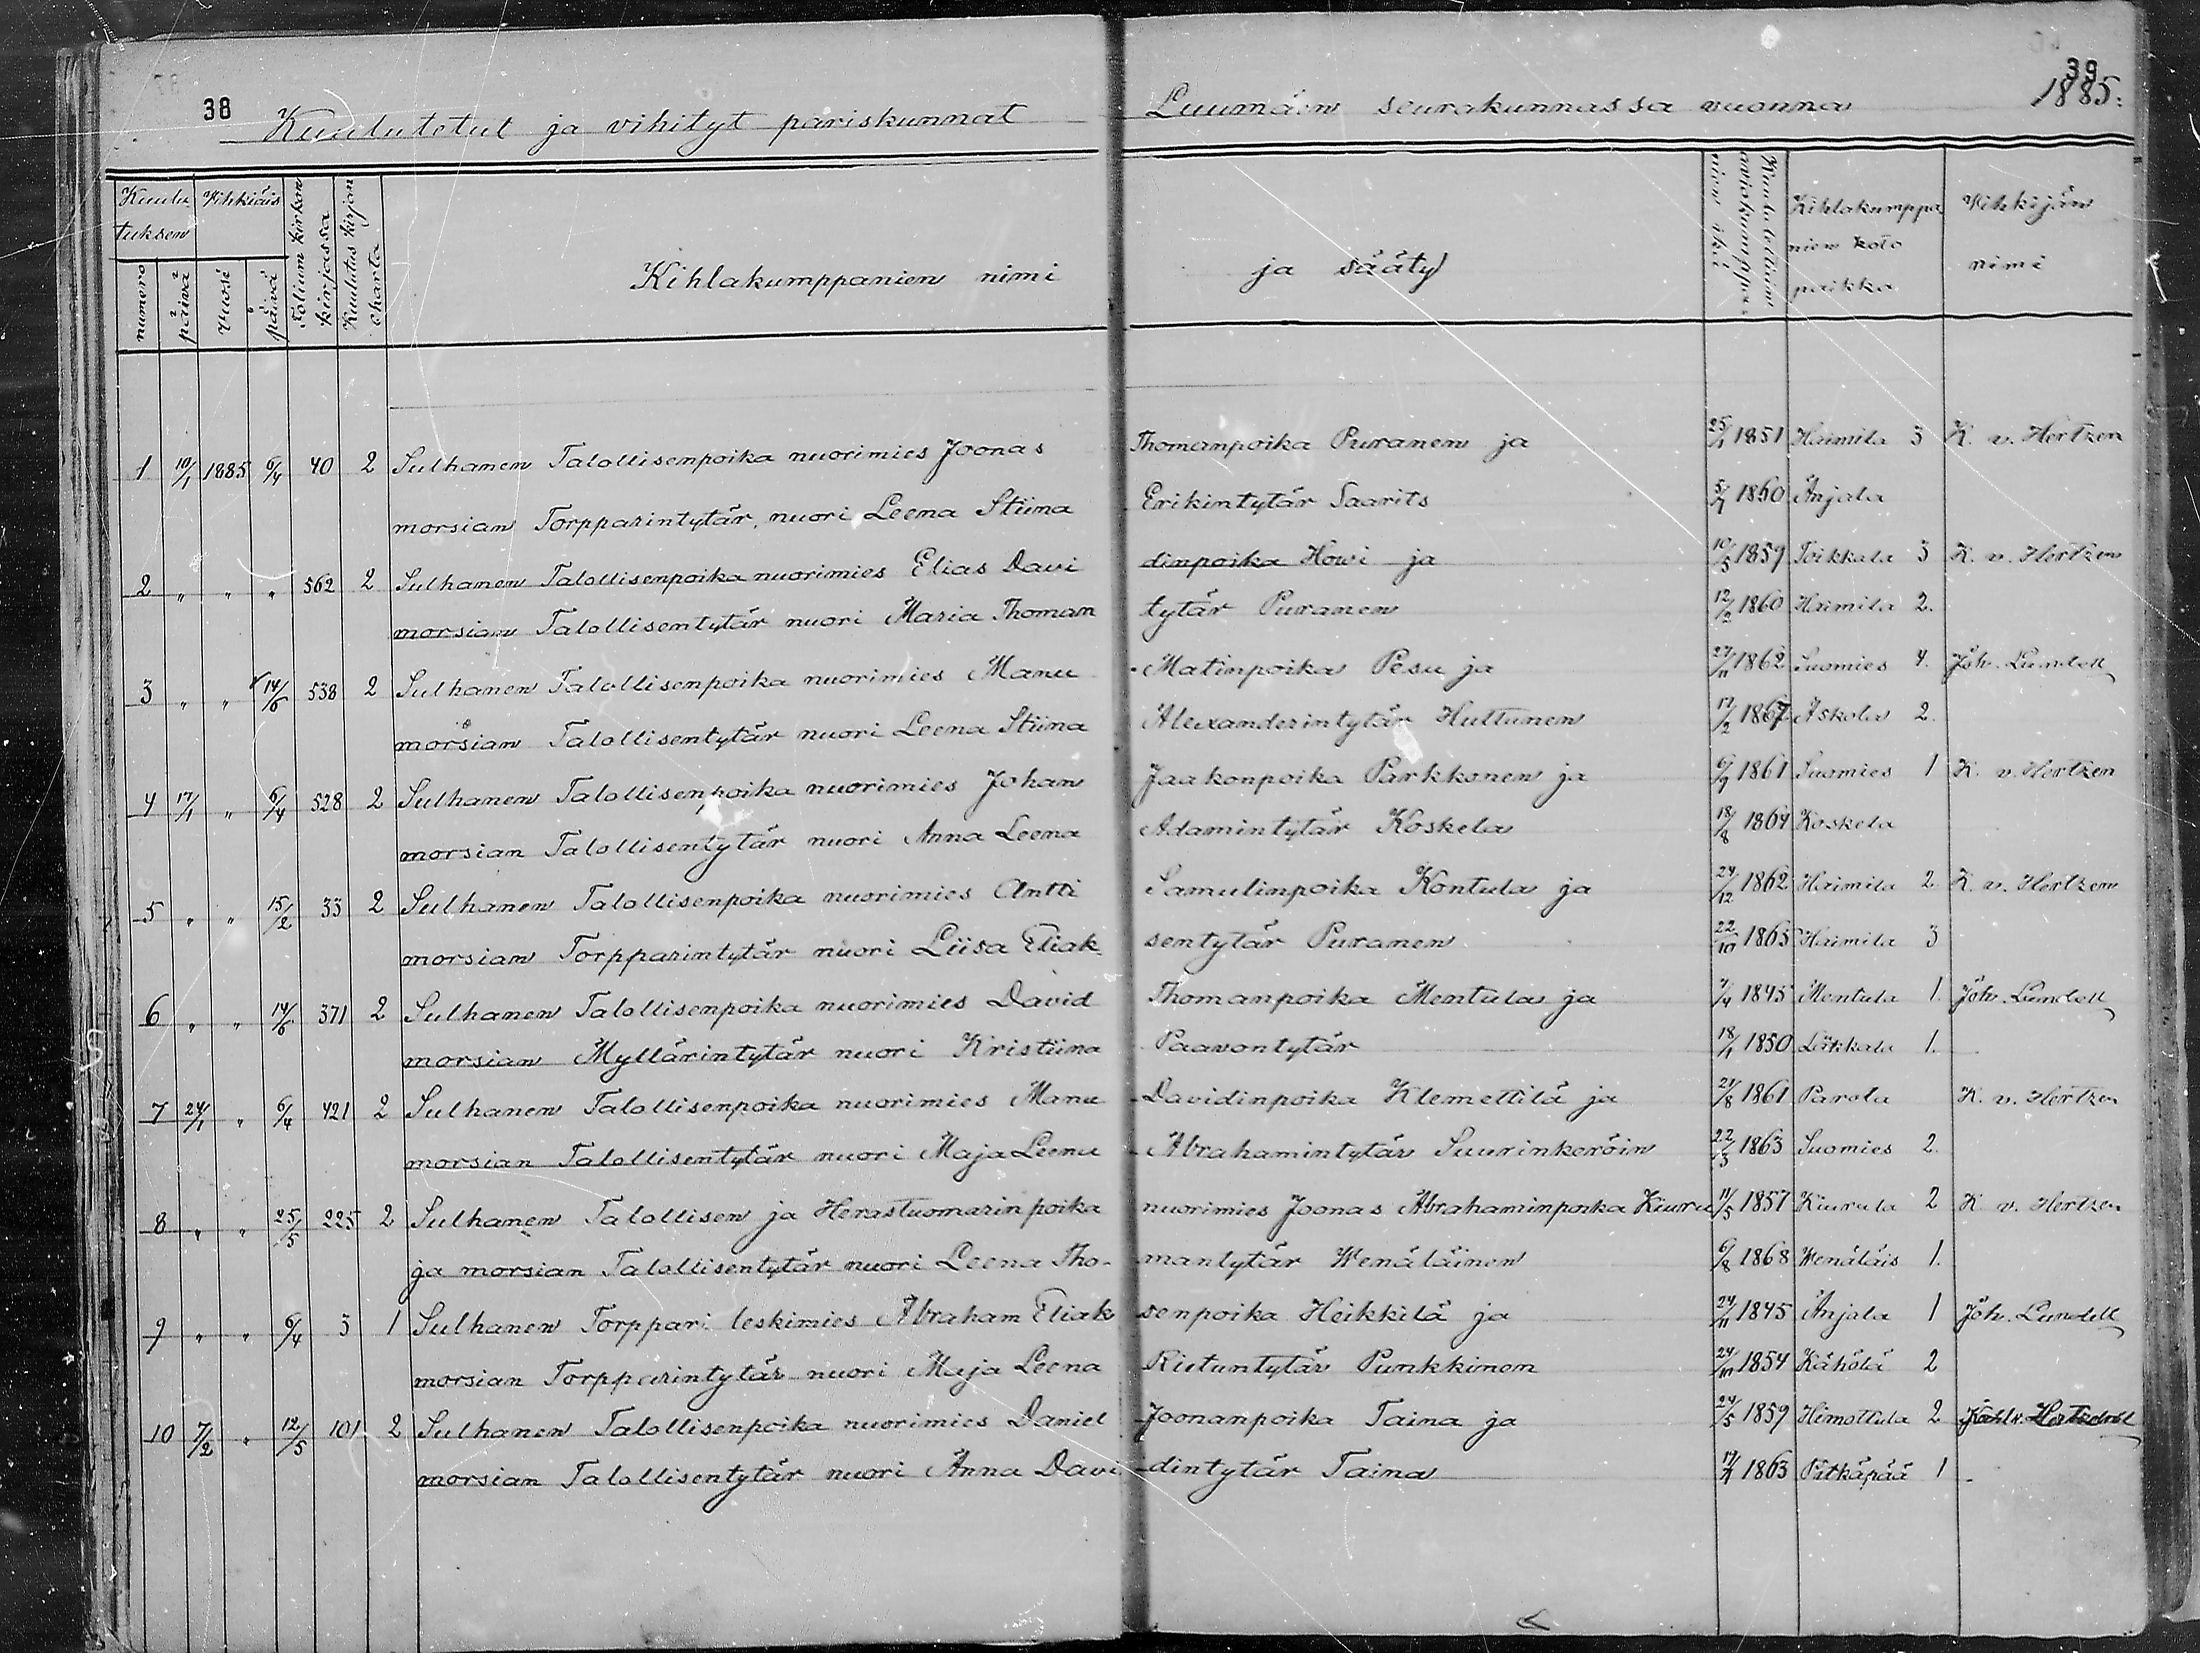 38
39
Kuulutetut ja vihityt pariskunnat Luumäen seurakunnassa vuonna 1885.
Kuulutuksen
numero
päivä
Vihkiäis
vuosi
päivä
Folium kirkonkirjassa
Kuulutus kirjan
Kihlakumppanien nimi ja sääty
Kihlakumppanien koto paikka
Vihkijän nimi
1 10/1 1885 6/4 40 2 Sulhanen Talollisenpoika nuorimies Joonas Thomanpoika Puranen ja 25/1 1851 Haimila 3 K. v. Hertzen
morsian Torpparintytär, nuori Leena Stiina Erikintytär Saarits 1860 Anjala
2 " " " 562 2 Sulhanen Talollisenpoika nuorimies Elias Davidinpoika Howi ja 10/3 1859 Toikkala 3 K. v. Hertzen
morsian Talollisentytär nuori Maria Thomantytär Puranen 12/2 1860 Haimila 2.
3 " " 14/6 538 2 Sulhanen Talollisenpoika nuorimies Manu Matinpoika Pesu ja 27/11 1862 Suomies 4. Joh. Lundell
morsian Talollisentytär nuori Leena Stiina Alexanderintytär Huttunen 17/2 1867 Askola 2.
4 17/1 " 6/4 528 2 Sulhanen Talollisenpoika nuorimies Johan Jaakonpoika Parkkonen ja 6/9 1861 Suomies 1 K. v. Hertzen
morsian Talollisentytär nuori Anna Leena Adamintytär Koskela 18/8 1864 Koskela
5 " " 15/2 33 2 Sulhanen Talollisenpoika nuorimies Antti Samulinpoika Kontula ja 24/12 1862 Haimila 2 K. v. Hertzen
morsian Torpparintytär nuori Liisa Eliaksentytär Puranen 22/10 1865 Haimila 3
6 " " 14/6 371 2 Sulhanen Talollisenpoika nuorimies David Thomanpoika Mentula ja 7/4 1845 Mentula 1. Joh. Lundell
morsian Myllärintytär nuori Kristiina Paavontytär 18/1 1850 Lätkkala 1.
7 24/1 " 6/4 421 2 Sulhanen Talollisenpoika nuorimies Manu Davidinpoika Klemettilä ja 21/8 1861 Parola K. v. Hertzen
morsian Talollisentytär nuori Maja Leena Abrahamintytär Suurinkeröin 22/3 1863 Suomies 2.
8 " " 25/5 225 2 Sulhanen Talollisen ja Herastuomarin poika nuorimies Joonas Abrahaminpoika Kiuru 11/5 1857 Kiurula 2 K. v. Hertzen
ja morsian Talollisentytär nuori Leena Tho-mantytär Wenäläinen 6/8 1868 Wenäläis 1.
9 " " 6/4 3 1 Sulhanen Torppari leskimies Abraham Eliaksenpoika Heikkilä ja 24/11 1845 Anjala 1 Joh. Lundell
morsian Torpparintytär nuori Maja Leena Riituntytär Punkkinen 24/10 1854 Kähölä 2
10 7/2 " 12/5 101 2 Sulhanen Talollisenpoika nuorimies Daniel Joonanpoika Taina ja 24/5 1859 Himottula 2
morsian Talollisentytär nuori Anna Davidintytär Taina 1863 Pitkäpää 1